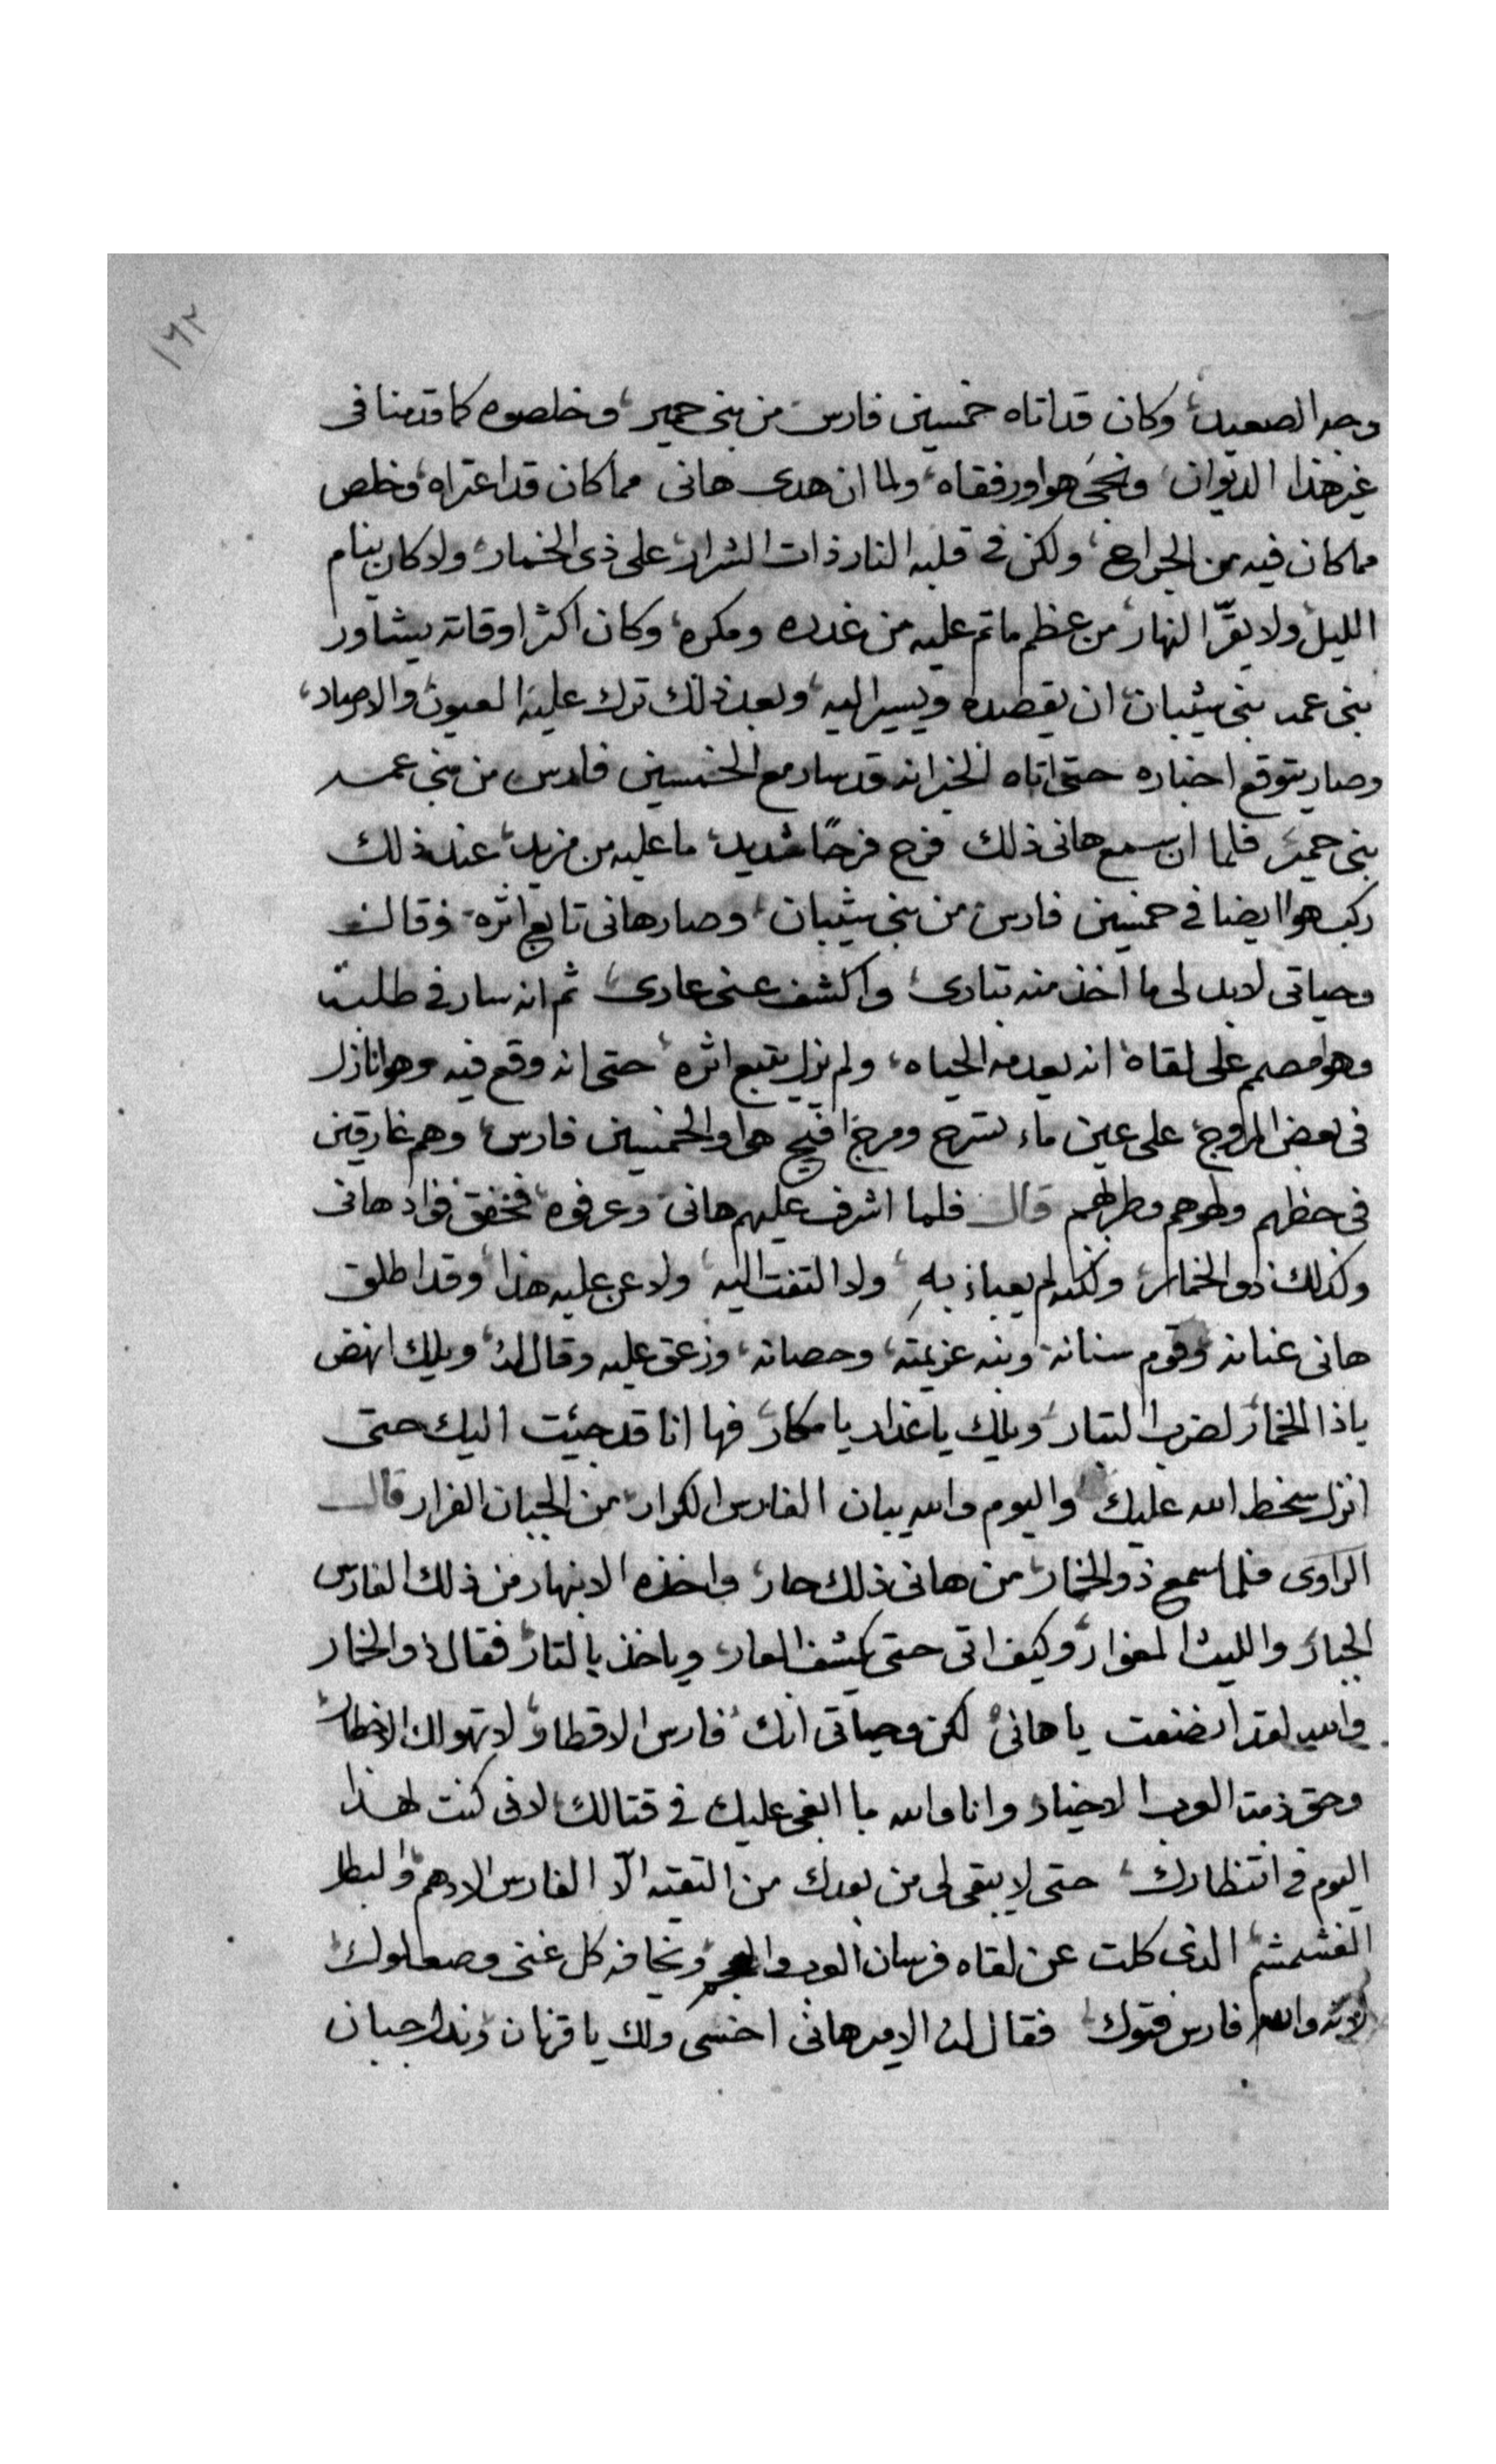 ١٦٢
وجه الصعيد، وكان قد اتاه خمسين فارس من بنى حمير، وخلصوه كما قدمنا فى
غير هذا الديوان، ونجى هوا ورفقاه، ولما ان هدى هانى مما كان قد اعتراه، وخلص
مما كان فيه من الجراح، ولكن فى قلبه النار ذات الشرار، على ذى الخمار، ولا كان ينام
الليل، ولا يقرّ النهار، من عظم ما تم عليه من غدره ومكره، وكان اكثر اوقاته يشاور
بنى عمه بنى شيبان، ان يقصده ويسير اليه، وبعد ذلك ترك عليه العيون، والارصاد،
وصار يتوقع اخباره حتى اتاه الخبر انه قد سار مع الخمسين فارس من بنى عمه
بنى حمير، فلما ان سمع هانى ذلك فرح فرحًا شديد، ما عليه من مزيد، عند ذلك
ركب هوا ايضا فى خمسين فارس من بنى شيبان، وصار هانى تابع اثره، وقال
وحياتى لابد لى ما اخذ منه بتارى، واكشف عنى عارى، ثم انه سار فى طلبه
وهوا مصمم على لقاه، انه يعدمه الحياه، ولم يزل يتبع اثره، حتى انه وقع فيه وهوا نازل
فى بعض المروج، على عين ماء تسرح ومرج افيح هوا والخمسين فارس، وهم غارقين
فى حظهم ولهوهم وطربهم قال فلما اشرف عليهم هانى، وعرفوه، فخفق فواد هانى
وكذلك ذو الخمار، ولكنه لم يعباء به، ولا التفت اليه، ولا عن عليه هذا، وقد اطلق
هانى عنانه، وقوم سنانه، ونبه عزيمته، وحصانه، وزعق عليه وقال له، ويلك انهض
ياذا الخمار، لضرب البتار، ويلك يا غدار يا مكار، فها انا قد جيئت اليك حتى
انزل سخط الله عليك، واليوم والله يبان الفارس الكرار، من الجبان الفرار قال
الراوى فلما سمع ذو الخمار، من هانى ذلك حار، واخذه الانبهار من ذلك الفارس
الجبار، والليث المغوار، وكيف اتى حتى يكشف العار، وياخذ بالتار، فقال ذو الخمار
والله لقد انصفت يا هانى، لكن وحياتى انك فارس الاقطار، لا تهولك الاخطار
وحق ذمة العرب الاخيار، وانا والله ما ابغى عليك فى قتالك، لانى كنت لهذا
اليوم فى انتظارك، حتى لا يبقى لى من بعدك من التقيه الّا الفارس الادهم، والبطل
الغشمشم، الذى كلت عن لقاه فرسان العرب والعجم، وتخافه كل غنى وصعلوك،
لانه والله فارس فتوك، فقال له الامير هانى اخسى ولك يا قرنان، ونذل جبان